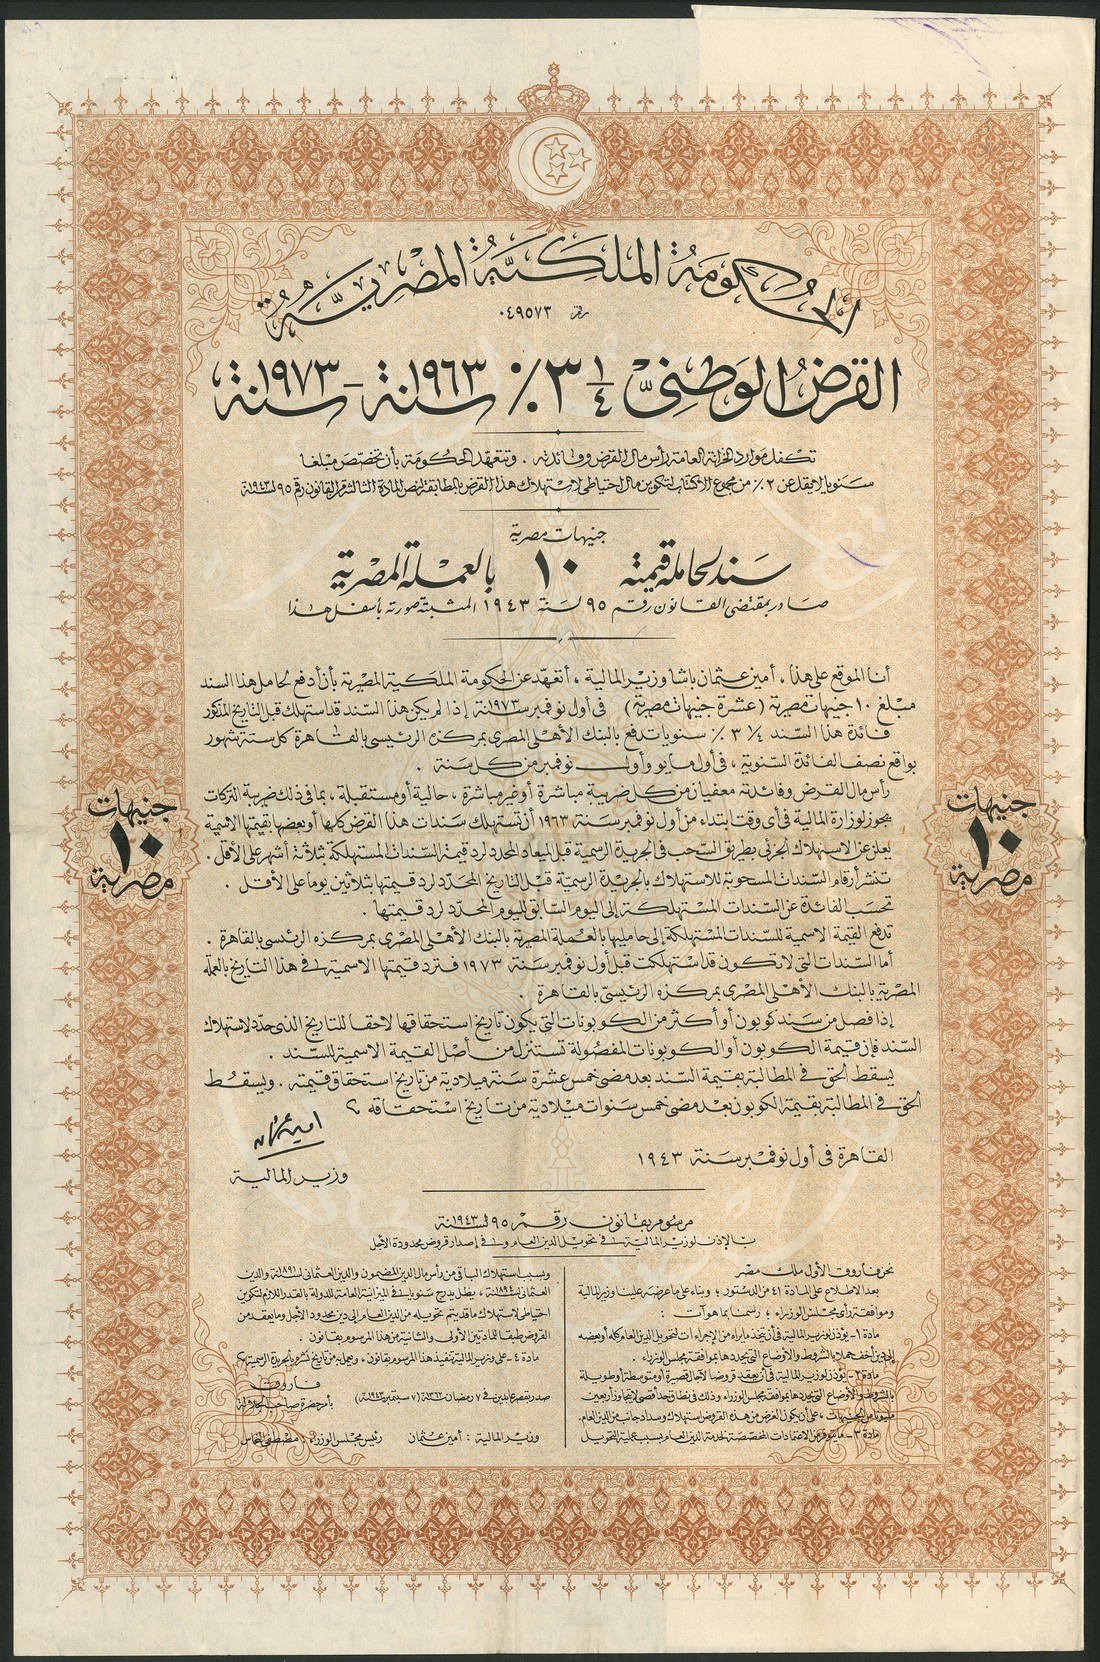 الحكومة الملكية المصرية
رقم ٠٤٩٥٧٣
القرض الوطنى ٣ ١/٤ ٪ سنة ١٩٦٣ - سنة ١٩٧٣
تكفل موارد الخزانة العامة رأس مال القرض وفائدته . وتتعهد الحكومة بأن تخصص مبلغا
سنويا لا يقل عن ٢٪ من مجموع الاكتتاب لتكوين مال احتياطى لاستهلاك هذا القرض بالمطابقة لنص المادة الثالثة من القانون رقم ٩٥ لسنة ١٩٤٣
جنيهات مصرية
سند لحامله قيمته ١٠ بالعملة المصرية
صادر بمقتضى القانون رقم ٩٥ لسنة ١٩٤٣ المثبتة صورته بأسفل هذا
أنا الموقع على هذا ، أمين عثمان باشا وزير المالية ، أتعهد عن الحكومة الملكية المصرية بأن أدفع لحامل هذا السند
مبلغ ١٠ جنيهات مصرية (عشرة جنيهات مصرية) فى أول نوفمبر سنة ١٩٧٣ إذا لم يكن هذا السند قد استهلك قبل التاريخ المذكور
فائدة هذا السند ٣ ١/٤ ٪ سنويا تدفع بالبنك الأهلى المصرى بمركزه الرئيسى بالقاهرة كل ستة شهور
بواقع نصف الفائدة السنوية ، فى أول مايو وأول نوفمبر من كل سنة .
رأس مال القرض وفائدته معفيان من كل ضريبة مباشرة أو غير مباشرة ، حالية أو مستقبلة ، بما فى ذلك ضريبة التركات
يجوز لوزارة المالية فى أى وقت ابتداء من أول نوفمبر سنة ١٩٦٣ أن تستهلك سندات هذا القرض كلها أو بعضها بقيمتها الاسمية
يعلن عن الاستهلاك الجزئى بطريق السحب فى الجريدة الرسمية قبل الميعاد المحدد لرد قيمة السندات المستهلكة ثلاثة أشهر على الأقل .
تنشر أرقام السندات المسحوبة للاستهلاك بالجريدة الرسمية قبل التاريخ المحدد لرد قيمتها بثلاثين يوما على الأقل .
تحسب الفائدة عن السندات المستهلكة إلى اليوم السابق لليوم المحدد لرد قيمتها .
تدفع القيمة الاسمية للسندات المستهلكة إلى حامليها بالعملة المصرية بالبنك الأهلى المصرى بمركزه الرئيسى بالقاهرة .
أما السندات التى لا تكون قد استهلكت قبل أول نوفمبر سنة ١٩٧٣ فترد قيمتها الاسمية فى هذا التاريخ بالعملة
المصرية بالبنك الأهلى المصرى بمركزه الرئيسى بالقاهرة .
إذا فصل من سند كوبون أو أكثر من الكوبونات التى يكون تاريخ استحقاقها لاحقا للتاريخ الذى حدد لاستهلاك
السند فإن قيمة الكوبون أو الكوبونات المفصولة تستنزل من أصل القيمة الاسمية للسند .
يسقط الحق فى المطالبة بقيمة السند بعد مضى خمس عشرة سنة ميلادية من تاريخ استحقاق قيمته . ويسقط
الحق فى المطالبة بقيمة الكوبون بعد مضى خمس سنوات ميلادية من تاريخ استحقاقه
القاهرة فى أول نوفمبر سنة ١٩٤٣
امين عثمان
وزير المالية
جنيهات
١٠
مصرية
جنيهات
١٠
مصرية
مرسوم بقانون رقم ٩٥ لسنة ١٩٤٣
بالإذن لوزير المالية فى تحويل الدين العام وفى إصدار قروض محدودة الأجل
نحن فاروق الأول ملك مصر
بعد الاطلاع على المادة ٤١ من الدستور ؛ وبناء على ما عرضه علينا وزير المالية
وموافقة رأى مجلس الوزراء ؛ رسمنا بما هو آت :
مادة ١ - يؤذن لوزير المالية فى أن يتخذ ما يراه من الإجراءات لتحويل الدين العام كله أو بعضه
إلى دين أخف حملا بالشروط والأوضاع التى يحددها بموافقة مجلس الوزراء .
مادة ٢ - يؤذن لوزير المالية فى أن يعقد قروضا لآجال قصيرة أو متوسطة أو طويلة
بالشروط والأوضاع التى يحددها بموافقة مجلس الوزراء وذلك فى نطاق حد أقصى لا يتجاوز أربعين
مليونا من الجنيهات ، على أن يكون الغرض من هذه القروض استهلاك وسداد جانب من الدين العام .
مادة ٣ - ما يتوفر من الاعتمادات المخصصة لخدمة الدين العام بسبب عملية التحويل
وبسبب استهلاك الباقى من رأس مال الدين المضمون والدين العثمانى لسنة ١٨٩١ والدين
العثمانى لسنة ١٨٩٤ ، يظل يدرج سنويا فى الميزانية العامة للدولة بالقدر اللازم لتكوين
احتياطى لاستهلاك ما قد يتم تحويله من الدين العام إلى دين محدود الأجل وما يعقد من
القروض طبقا للمادتين الأولى والثانية من هذا المرسوم بقانون .
مادة ٤ - على وزير المالية تنفيذ هذا المرسوم بقانون ، ويعمل به من تاريخ نشره بالجريدة الرسمية
فاروق
صدر بقصر عابدين فى ٧ رمضان سنة ١٣٦٢ (٧ سبتمبر سنة ١٩٤٣) بأمر حضرة صاحب الجلالة
وزير المالية : أمين عثمان رئيس مجلس الوزراء : مصطفى النحاس